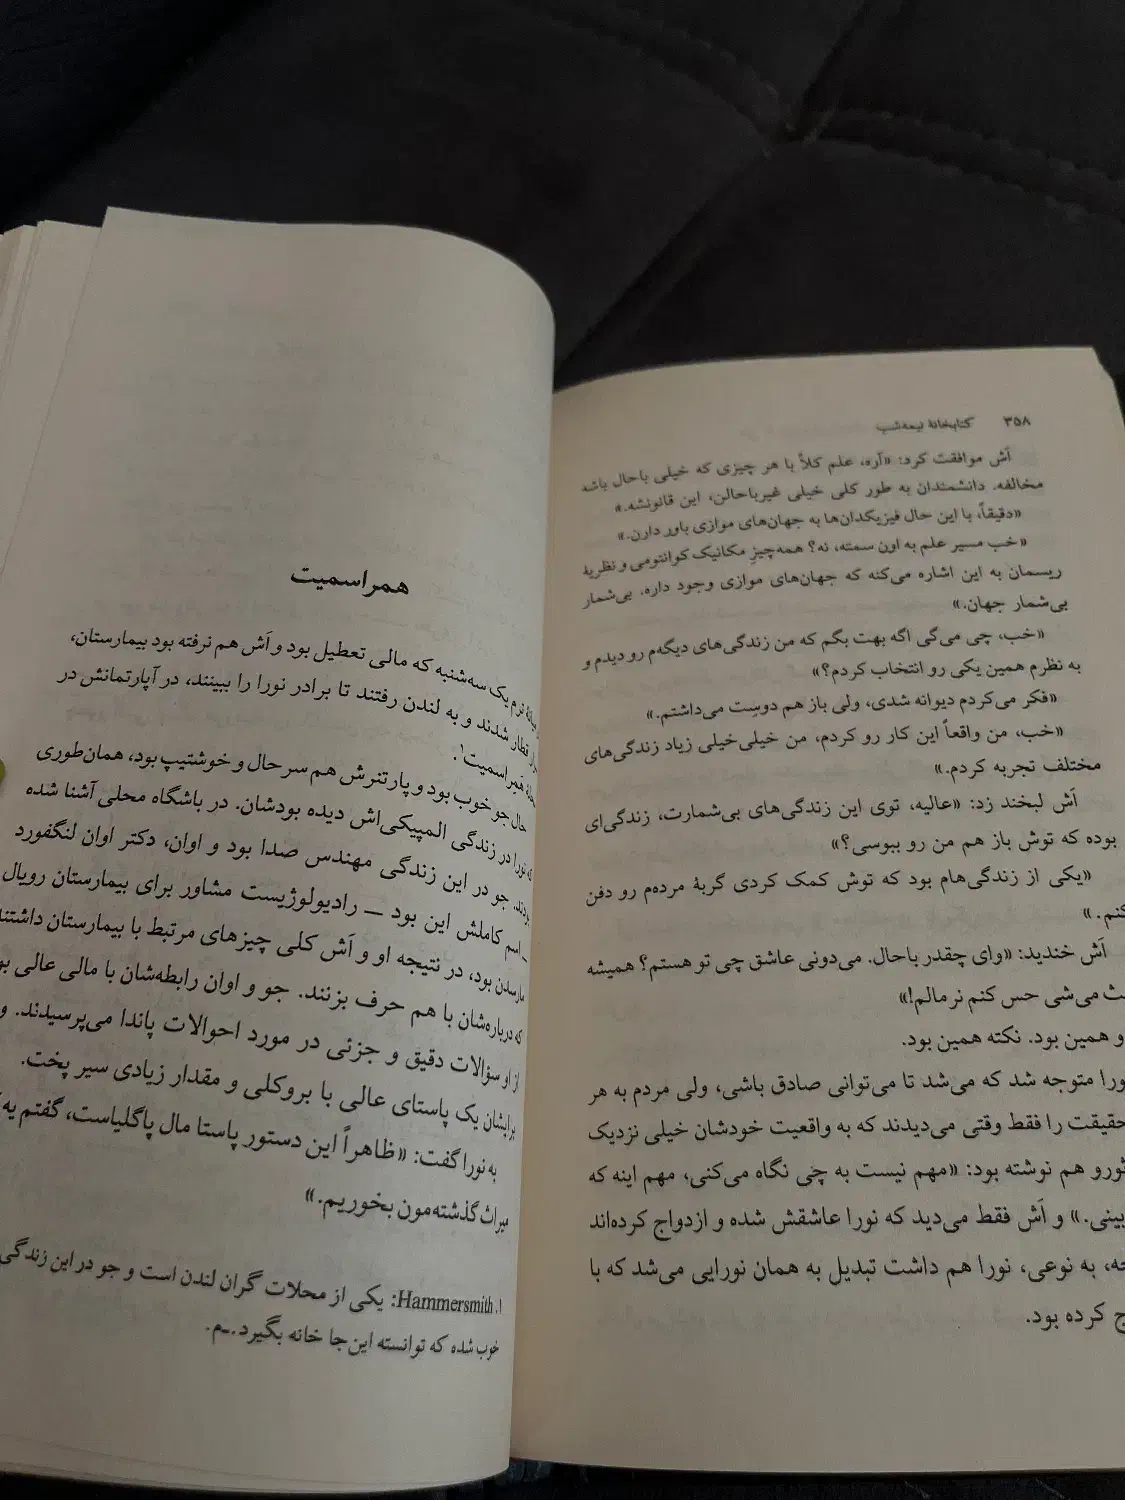 ۳۵۸ کتابخانهٔ نیمه‌شب
آش موافقت کرد: «آره، علم کلاً با هر چیزی که خیلی باحال باشه
مخالفه. دانشمندان به طور کلی خیلی غیرباحالن، این قانونشه.»
«دقیقاً، با این حال فیزیکدان‌ها به جهان‌های موازی باور دارن.»
«خب مسیر علم به اون سمته، نه؟ همه‌چیزِ مکانیک کوانتومی و نظریهٔ
ریسمان به این اشاره می‌کنه که جهان‌های موازی وجود داره. بی‌شمار
بی‌شمار جهان.»
«خب، چی می‌گی اگه بهت بگم که من زندگی‌های دیگه‌م رو دیدم و
به نظرم همین یکی رو انتخاب کردم؟»
«فکر می‌کردم دیوانه شدی، ولی باز هم دوسِت می‌داشتم.»
«خب، من واقعاً این کار رو کردم، من خیلی‌خیلی زیاد زندگی‌های
مختلف تجربه کردم.»
آش لبخند زد: «عالیه، توی این زندگی‌های بی‌شمارت، زندگی‌ای
بوده که توش باز هم من رو ببوسی؟»
«یکی از زندگی‌هام بود که توش کمک کردی گربهٔ مرده‌م رو دفن
کنم.»
آش خندید: «وای چقدر باحال. می‌دونی عاشق چی تو هستم؟ همیشه
می‌شی حس کنم نرمالم!»
و همین بود. نکته همین بود.
متوجه شد که می‌شد تا می‌توانی صادق باشی، ولی مردم به هر
حقیقت را فقط وقتی می‌دیدند که به واقعیت خودشان خیلی نزدیک
هم نوشته بود: «مهم نیست به چی نگاه می‌کنی، مهم اینه که
و آش فقط می‌دید که نورا عاشقش شده و ازدواج کرده‌اند
به نوعی، نورا هم داشت تبدیل به همان نورایی می‌شد که با
کرده بود.
همراسمیت
یک سه‌شنبه که مالی تعطیل بود و آش هم نرفته بود بیمارستان،
قطار شدند و به لندن رفتند تا برادر نورا را ببینند، در آپارتمانش در
همراسمیت۱.
حال جو خوب بود و پارتنرش هم سرحال و خوشتیپ بود، همان‌طوری
که نورا در زندگی المپیکی‌اش دیده بودشان. در باشگاه محلی آشنا شده
بودند. جو در این زندگی مهندس صدا بود و اوان، دکتر اوان لنگفورد
– اسم کاملش این بود – رادیولوژیست مشاور برای بیمارستان رویال
مارسدن بود، در نتیجه او و آش کلی چیزهای مرتبط با بیمارستان داشتند
که درباره‌شان با هم حرف بزنند. جو و اوان رابطه‌شان با مالی عالی
از او سؤالات دقیق و جزئی در مورد احوالات پاندا می‌پرسیدند.
برایشان یک پاستای عالی با بروکلی و مقدار زیادی سیر پخت.
به نورا گفت: «ظاهراً این دستور پاستا مال پاگلیاست، گفتم یه
میراث گذشته‌مون بخوریم.»
۱. Hammersmith: یکی از محلات گران لندن است و جو در این زندگی
خوب شده که توانسته این‌جا خانه بگیرد.ـ‌م.